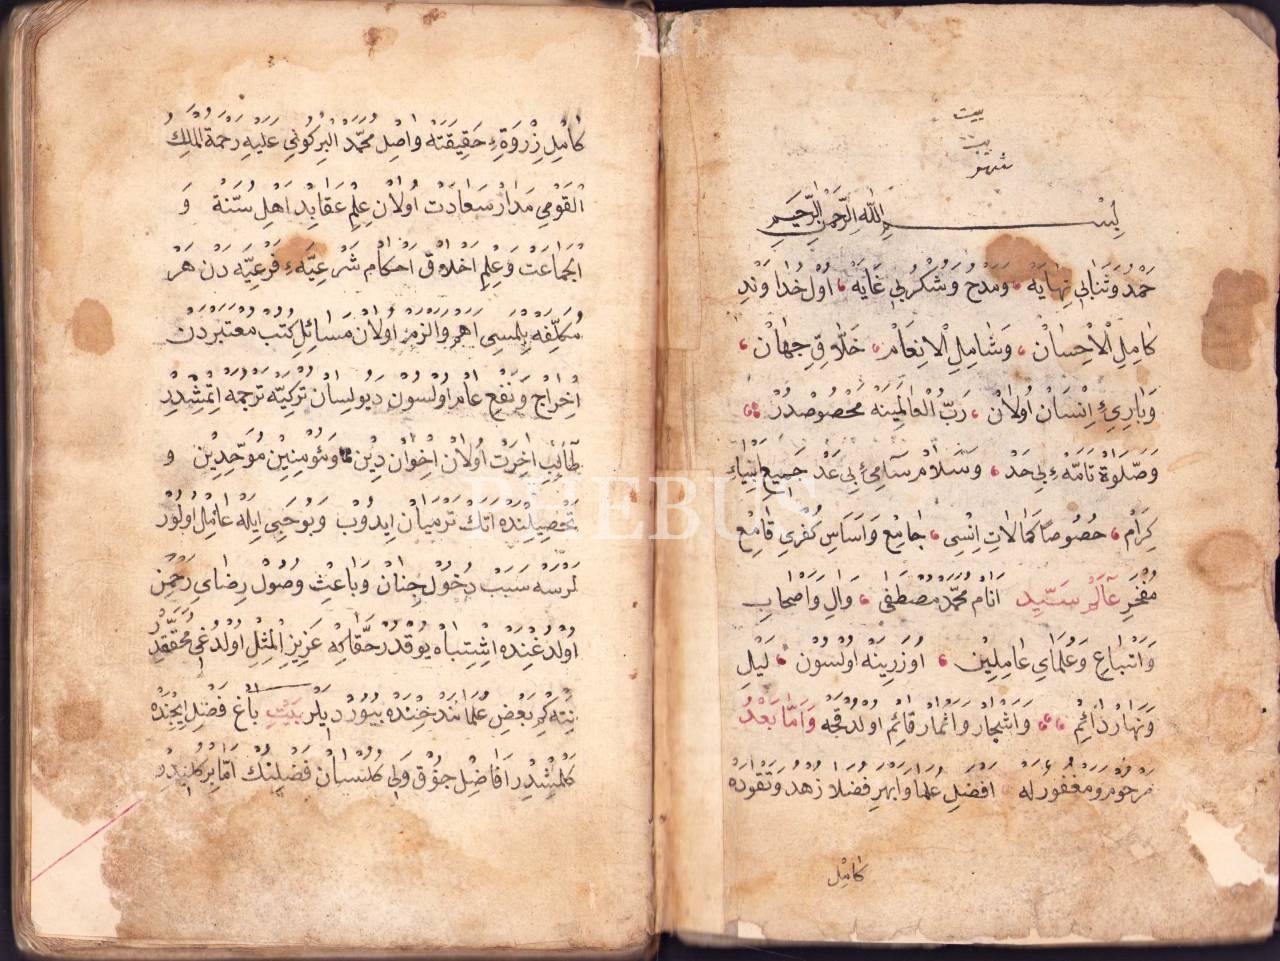 بيت
بسم الله الرحمن الرحيم
حَمْدُ وَثَنَايِ بِي نِهَايَهْ وَمَدْحُ وَشُكْرِ بِي غَايَهْ اُولْ خُدَاوَنْدِ
كَامِلِ الْاِحْسَانْ وَشَامِلِ الْاِنْعَامْ خَلَّاقِ جِهَانْ
وَبَارِيءِ اِنْسَانْ اُولَانْ رَبُّ الْعَالَمِينَهْ مَخْصُوصْدُرْ
وَصَلَوةِ تَامَّهءِ بِي حَدْ وَسَلَامِ سَامِيءِ بِي عَدْ جَمِيعِ اَنْبِيَاءِ
كِرَامْ خُصُوصًا كَمَالَاتِ اِنْسِي جَامِعْ وَاَسَاسِ كُفْرِي قَامِعْ
مَفْخَرِ عَالَمْ سَيِّدِ اَنَامْ مُحَمَّدْ مُصْطَفَى وَاٰلِ وَاَصْحَابِ
وَاَتْبَاعِ وَعُلَمَايِ عَامِلِينْ اُوزَرِينَهْ اُولْسُونْ لَيْلِ
وَنَهَارْ دَائِمْ وَاَشْجَارْ وَاَثْمَارْ قَائِمْ اُولْدُقْجَهْ وَاَمَّا بَعْدُ
مَرْحُومْ وَمَغْفُورٌ لَهُ اَفْضَلِ عُلَمَا وَاَبْهَرِ فُضَلَا زُهْدُ وَتَقْوَدَهْ
كامل
كَامِلِ ذِرْوَةءِ حَقِيقَتَهْ وَاصِلْ مُحَمَّدْ الْبِرْكُوِيُّ عَلَيْهِ رَحْمَةُ الْمَلِكِ
الْقَوِيِّ مَدَارْ سَعَادَتْ اُولَانْ عِلْمِ عَقَايِدْ اَهْلِ سُنَّةْ وَ
الْجَمَاعَتْ وَعِلْمِ اَخْلَاقْ اَحْكَامِ شَرْعِيَّهءِ فَرْعِيَّهدَنْ هَرْ
مُكَلَّفَهْ بِلْمَسِي اَهَمْ وَاَلْزَمْ اُولَانْ مَسَائِلِ كُتُبِ مُعْتَبَرَدَنْ
اِخْرَاجْ وَنَفْعِ عَامْ اُولْسُونْ دِيُو لِسَانِ تُرْكِيَّهْ تَرْجُمَهْ اِتْمِشْدِرْ
طَالِبِ اٰخِرَتْ اُولَانْ اِخْوَانِ دِينْ وَمُؤْمِنِينْ مُوَحِّدِينْ وَ
تَحْصِيلِنْدَهْ اِيدُوبْ وَمُوجَبِي اِيلَهْ عَامِلْ اُولُورْ
لَرْسَهْ سَبَبْ دُخُولْ جِنَانْ وَبَاعِثْ وُصُولْ رِضَايِ رَحْمٰنْ
اُولْدُغِنْدَهْ اِشْتِبَاهْ يُوقْدُرْ حَقَّا كِهْ عَزِيزِ الْمِثْلِ اُولْدُغِي مُحَقَّقْدِرْ
نِتَهْ كِمْ بَعْضِ عُلَمَانْدَخِنْدَهْ بُيُورْدِيلَرْ بَيْت بَاغِ فَضْلْ اِيچِنْدَهْ
كَلْمِشْدِرْ اَفَاضِلْ چُوقْ وَلِي كُلِسْتَانِ فَضِلِنْكْ اَمَّا بِرْ كُلِيدِرْ